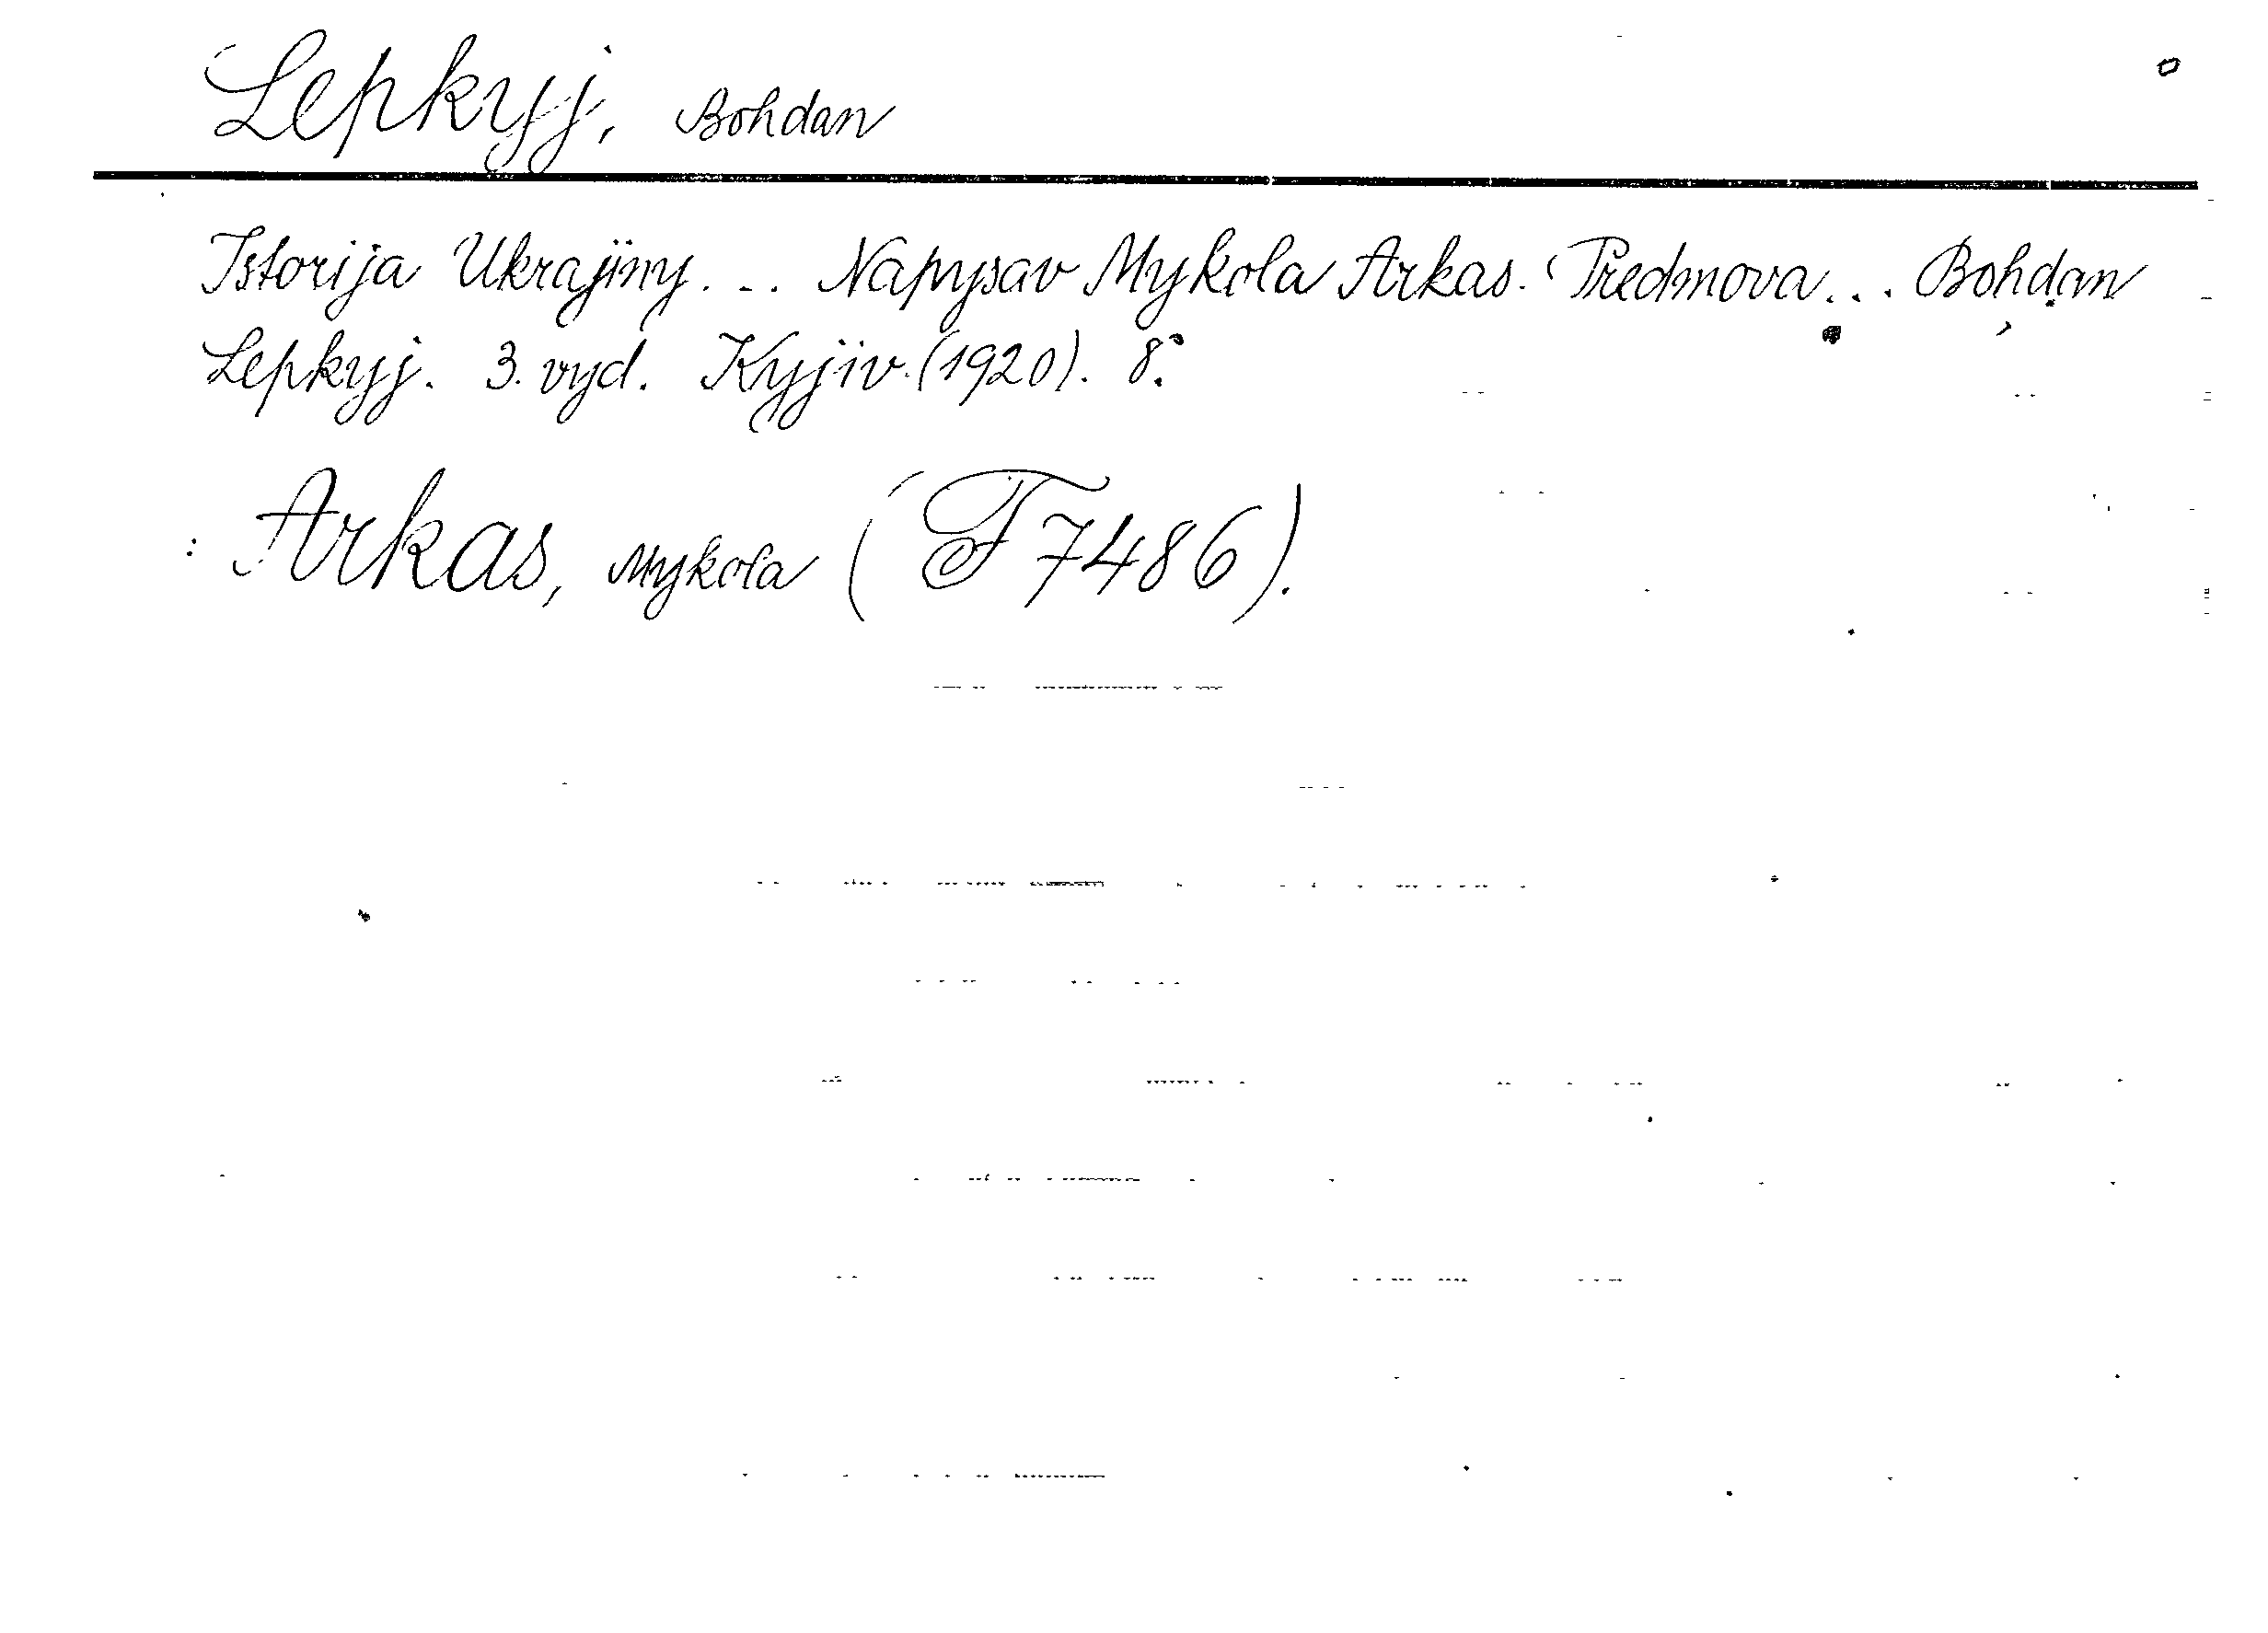 Lepkyj, Bohdan
Istorija Ukrajiny... Napysav Mykola Arkas. Predmova... Bohdan
Lepkyj. 3. vyd. Kyjiv.(1920). 8°.
: Arkas, Mykola (T 7486).